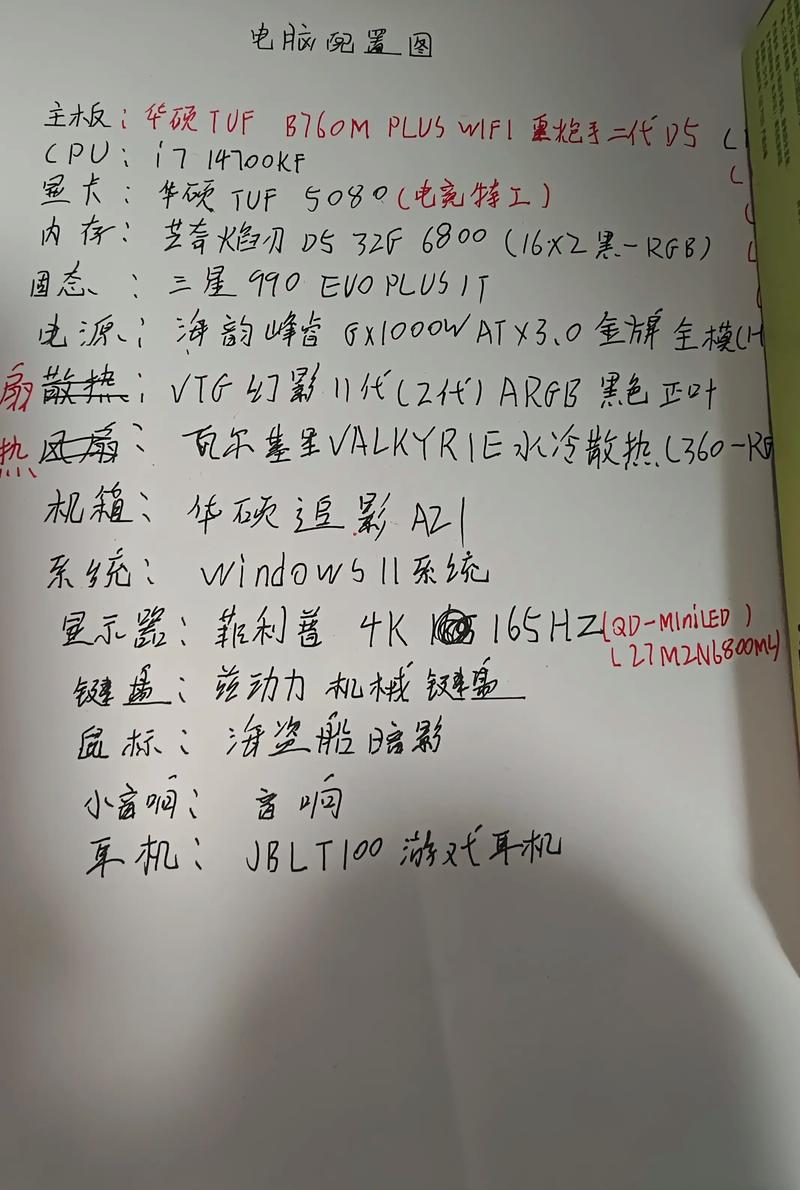 电脑配置图
主板：华硕 TUF B760M PLUS WIFI 重炮手二代 D5 (
CPU：i7 14700KF
显卡：华硕 TUF 5080 (电竞特工)
内存：芝奇焰刃 D5 32G 6800 (16X2 黑-RGB)
固态：三星 990 EVO PLUS 1T
电源：海韵峰睿 GX1000W ATX3.0 金牌 全模(H
扇 散热：VTG 幻影 11代 (2代) ARGB 黑色 正叶
热 风扇：瓦尔基里 VALKYRIE 水冷散热 (360-RG
机箱：华硕 追影 A21
系统：windows 11 系统
显示器：菲利普 4K 165HZ (QD-MiniLED)
(27M2N6800ML)
键盘：兹动力 机械 键盘
鼠标：海盗船暗影
小音响：音响
耳机：JBLT100 游戏耳机